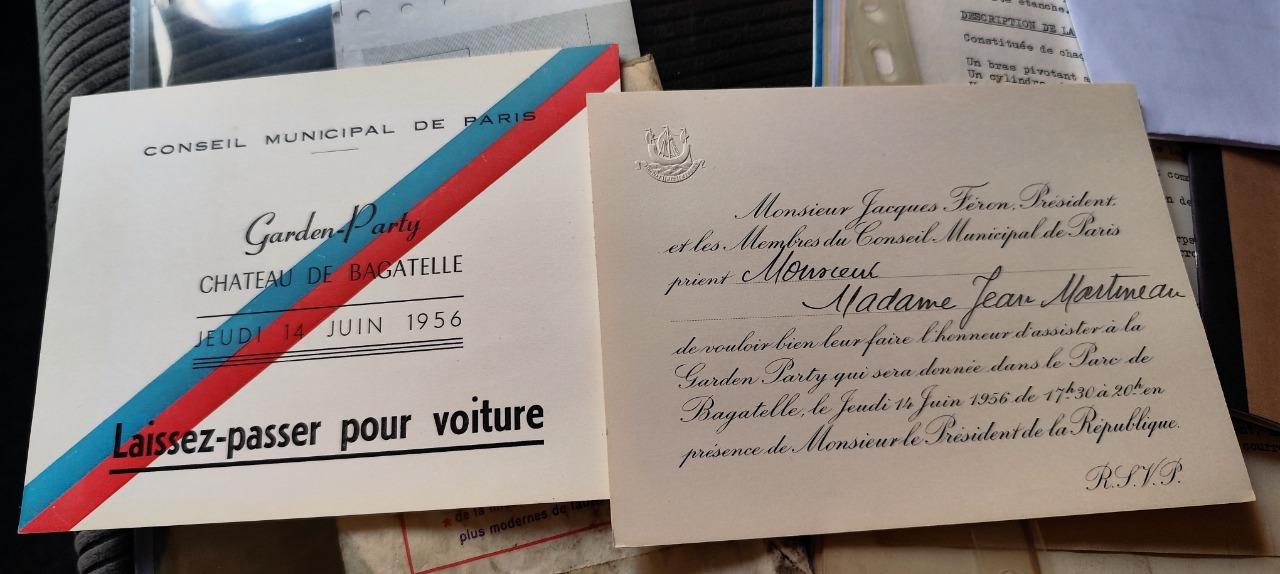 CONSEIL MUNICIPAL DE PARIS
Garden-Party
CHATEAU DE BAGATELLE
JEUDI 14 JUIN 1956
Laissez-passer pour voiture
Monsieur Jacques Féron, Président
et les Membres du Conseil Municipal de Paris
prient Monsieur
Madame Jean Martineau
de vouloir bien leur faire l'honneur d'assister à la
Garden Party qui sera donnée dans le Parc de
Bagatelle, le Jeudi 14 Juin 1956 de 17h30 à 20h en
présence de Monsieur le Président de la République.
R.S.V.P.
étanche.
DESCRIPTION DE LA
Constituée de
Un bras pivotant
Un cylindre
plus modernes de